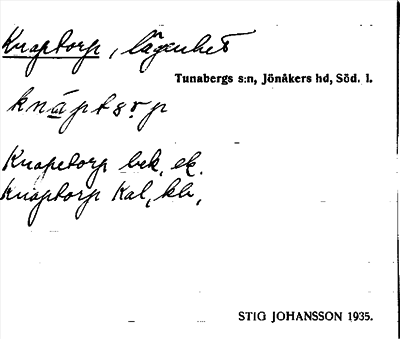 Knaptorp, lägenhet
Tunabergs s:n, Jönåkers hd, Söd. l.
knáptorp
Knapetorp bek. ek.
Knaptorp Kal, kb,
STIG JOHANSSON 1935.